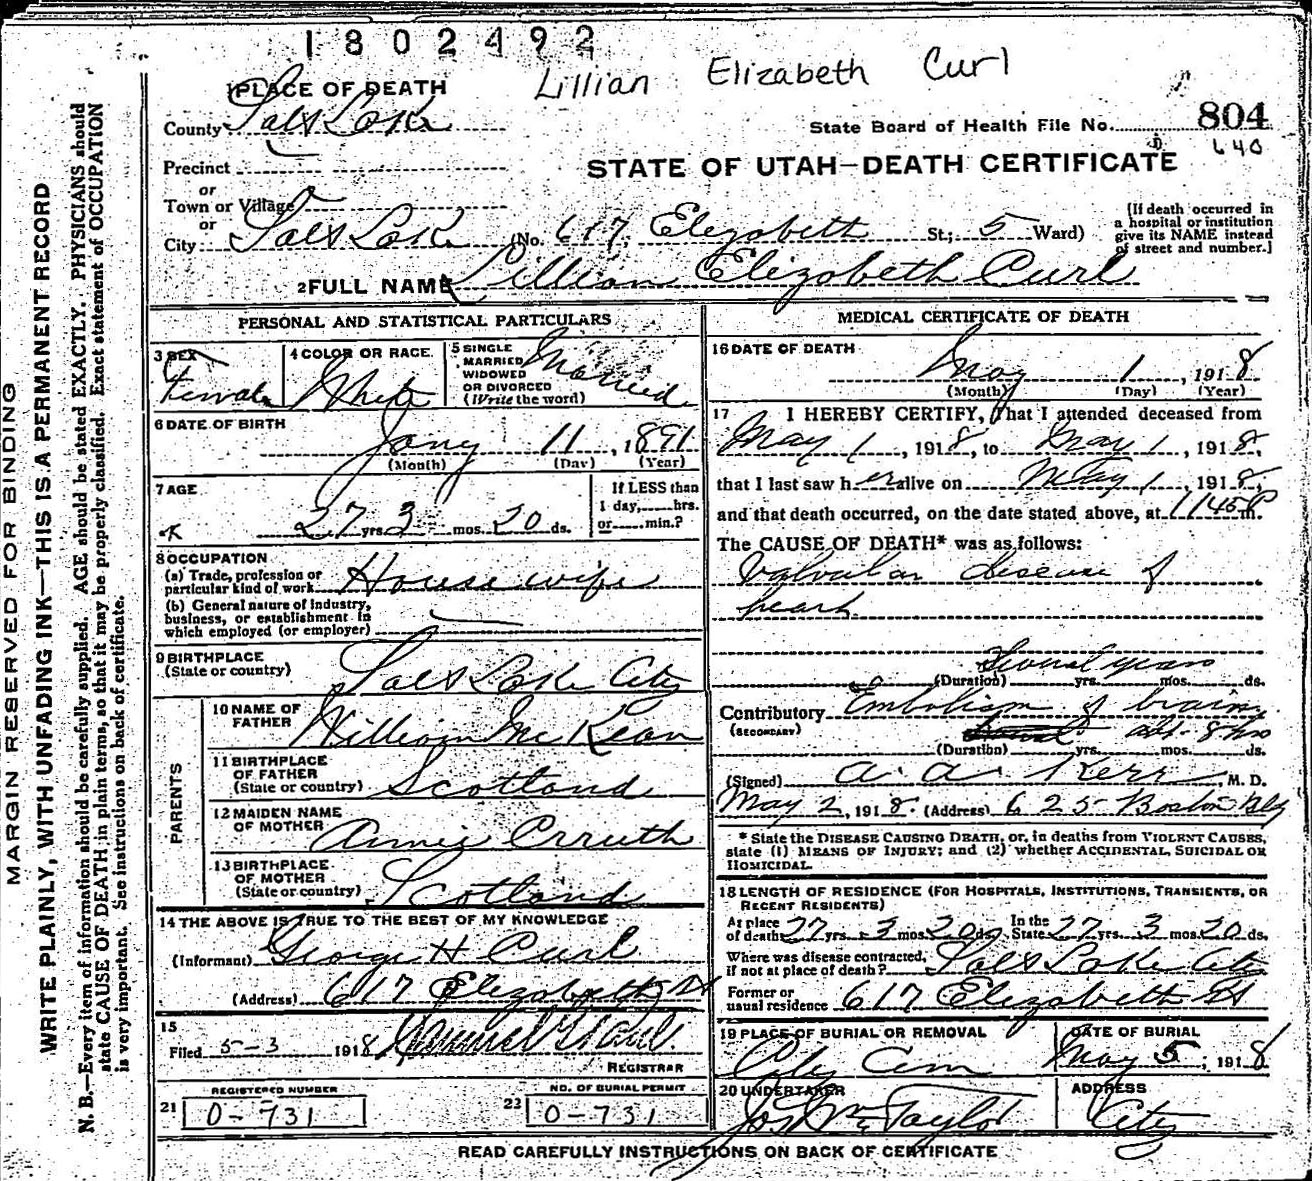 1802492
Lillian Elizabeth Curl
1 PLACE OF DEATH
County Salt Lake
State Board of Health File No. 804
640
Precinct
or
Town or Village
or
STATE OF UTAH—DEATH CERTIFICATE
City Salt Lake (No. 617 Elizabeth St.; 5 Ward)
[If death occurred in
a hospital or institution
give its NAME instead
of street and number.]
2 FULL NAME Lillian Elizabeth Curl
PERSONAL AND STATISTICAL PARTICULARS
3 SEX Female
4 COLOR OR RACE White
5 SINGLE
MARRIED
WIDOWED
OR DIVORCED
(Write the word) Married
6 DATE OF BIRTH
Jany 11, 1891
(Month) (Day) (Year)
7 AGE
27 yrs 3 mos. 20 ds.
If LESS than
1 day, hrs.
or min.?
8 OCCUPATION
(a) Trade, profession or
particular kind of work Housewife
(b) General nature of industry,
business, or establishment in
which employed (or employer)
9 BIRTHPLACE
(State or country) Salt Lake City
PARENTS
10 NAME OF
FATHER William McKean
11 BIRTHPLACE
OF FATHER
(State or country) Scotland
12 MAIDEN NAME
OF MOTHER Annie Crruth
13 BIRTHPLACE
OF MOTHER
(State or country) Scotland
14 THE ABOVE IS TRUE TO THE BEST OF MY KNOWLEDGE
(Informant) George H Curl
(Address) 617 Elizabeth St
15
Filed 5-3 1918
REGISTRAR
21 REGISTERED NUMBER
0-731
22 NO. OF BURIAL PERMIT
0-731
MEDICAL CERTIFICATE OF DEATH
16 DATE OF DEATH
May 1, 1918
(Month) (Day) (Year)
17 I HEREBY CERTIFY, That I attended deceased from
May 1, 1918, to May 1, 1918,
that I last saw her alive on May 1, 1918,
and that death occurred, on the date stated above, at 1145 P m.
The CAUSE OF DEATH* was as follows:
Valvular disease of
heart
Several years
(Duration) yrs. mos. ds.
Contributory Embolism of brain
(SECONDARY) abt. 8 hrs
(Duration) yrs. mos. ds.
(Signed) A. A. Kerr M. D.
May 2, 1918. (Address) 625 Boston Bldg
* State the DISEASE CAUSING DEATH, or, in deaths from VIOLENT CAUSES,
state (1) MEANS OF INJURY; and (2) whether ACCIDENTAL, SUICIDAL OR
HOMICIDAL.
18 LENGTH OF RESIDENCE (FOR HOSPITALS, INSTITUTIONS, TRANSIENTS, OR
RECENT RESIDENTS)
At place
of death 27 yrs. 3 mos. 20 ds. In the State 27 yrs. 3 mos. 20 ds.
Where was disease contracted,
if not at place of death? Salt Lake City
Former or
usual residence 617 Elizabeth St
19 PLACE OF BURIAL OR REMOVAL
City Cem
DATE OF BURIAL
May 5, 1918
20 UNDERTAKER
Jos Wm Taylor
ADDRESS
City
READ CAREFULLY INSTRUCTIONS ON BACK OF CERTIFICATE
MARGIN RESERVED FOR BINDING
WRITE PLAINLY, WITH UNFADING INK—THIS IS A PERMANENT RECORD
N. B.—Every item of information should be carefully supplied. AGE should be stated EXACTLY. PHYSICIANS should
state CAUSE OF DEATH in plain terms, so that it may be properly classified. Exact statement of OCCUPATION
is very important. See instructions on back of certificate.